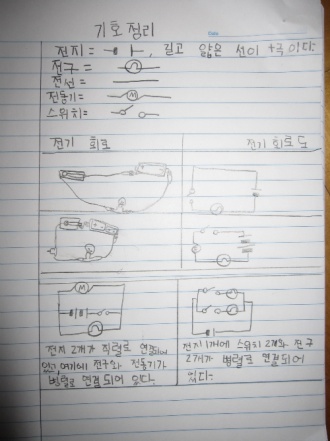 기호 정리
전지 = , 길고 얇은 선이 +극이다.
전구 =
전선 =
전동기= M
스위치=
전기 회로 전기 회로도
M
전지 2개가 직렬로 연결되어
있고, 여기에 전구와 전동기가
병렬로 연결되어 있다.
전지 1개에 스위치 2개와 전구
2개가 병렬로 연결되어
있다.